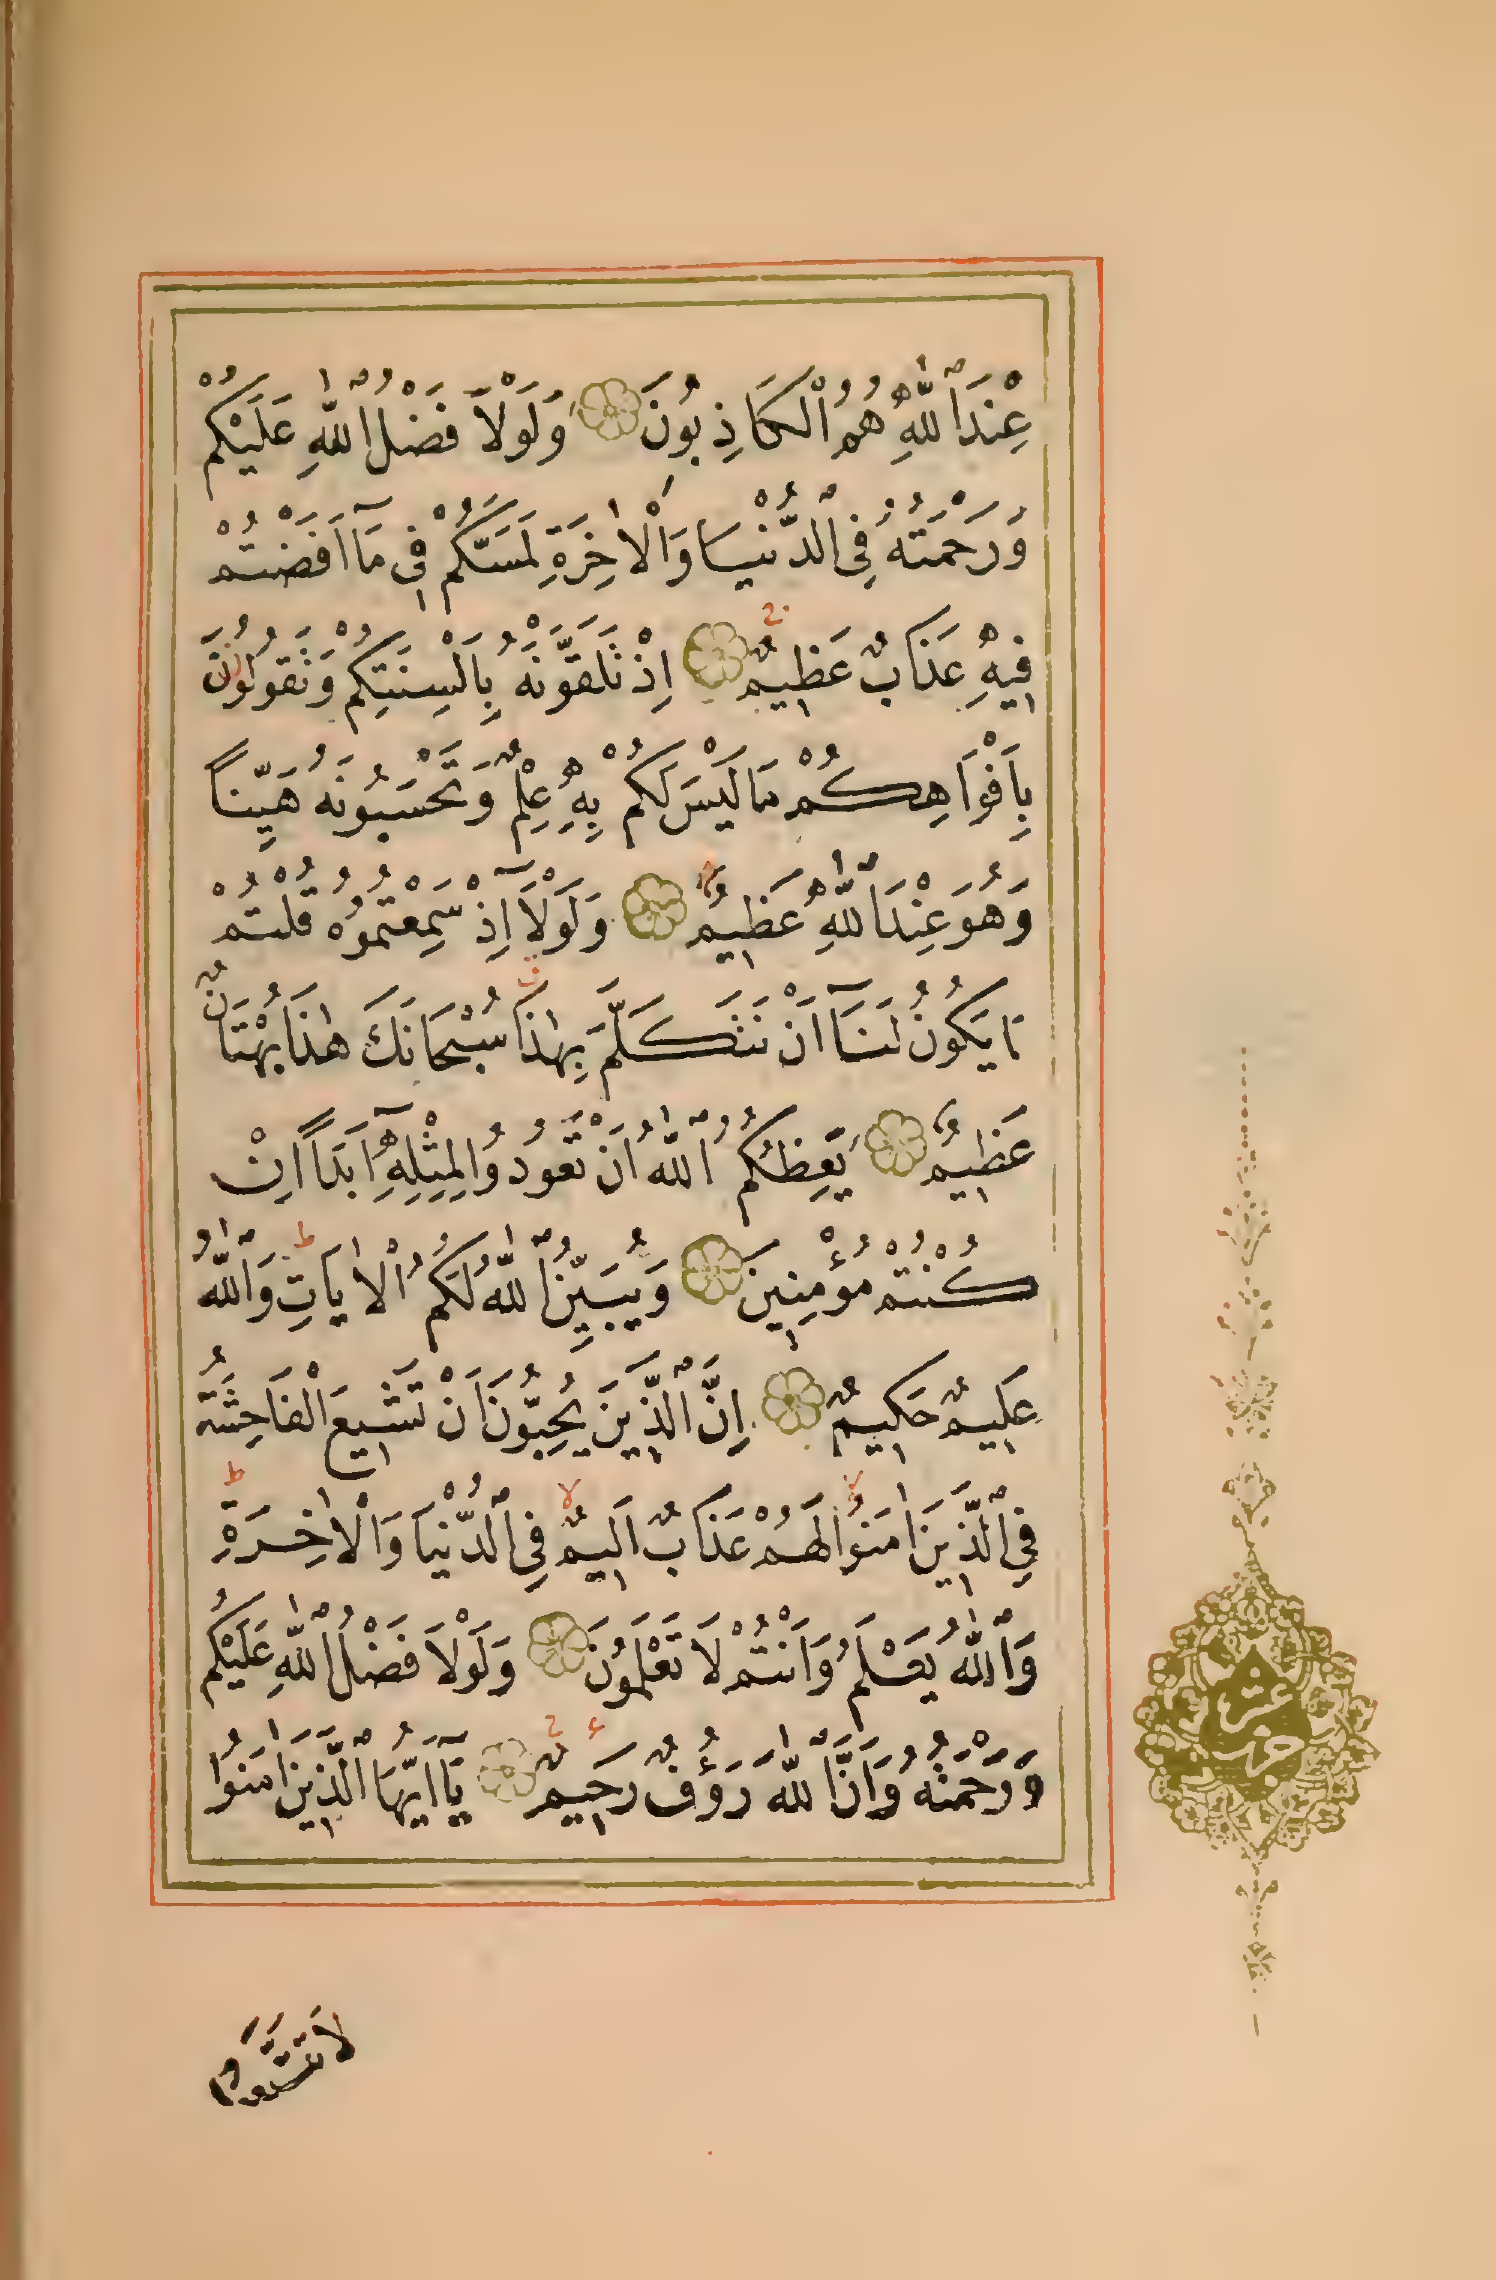 عِنْدَ اللّٰهِ هُمُ الْكَاذِبُونَ وَلَوْلَا فَضْلُ اللّٰهِ عَلَيْكُمْ
وَرَحْمَتُهُ فِي الدُّنْيَا وَالْاٰخِرَةِ لَمَسَّكُمْ فٖي مَٓا اَفَضْتُمْ
فٖيهِ عَذَابٌ عَظٖيمٌ اِذْ تَلَقَّوْنَهُ بِاَلْسِنَتِكُمْ وَتَقُولُونَ
بِاَفْوَاهِكُمْ مَا لَيْسَ لَكُمْ بِهٖ عِلْمٌ وَتَحْسَبُونَهُ هَيِّنًا
وَهُوَ عِنْدَ اللّٰهِ عَظٖيمٌ وَلَوْلَٓا اِذْ سَمِعْتُمُوهُ قُلْتُمْ
مَا يَكُونُ لَنَٓا اَنْ نَتَكَلَّمَ بِهٰذَا سُبْحَانَكَ هٰذَا بُهْتَانٌ
عَظٖيمٌ يَعِظُكُمُ اللّٰهُ اَنْ تَعُودُوا لِمِثْلِهٖٓ اَبَدًا اِنْ
كُنْتُمْ مُؤْمِنٖينَ وَيُبَيِّنُ اللّٰهُ لَكُمُ الْاٰيَاتِ وَاللّٰهُ
عَلٖيمٌ حَكٖيمٌ اِنَّ الَّذٖينَ يُحِبُّونَ اَنْ تَشٖيعَ الْفَاحِشَةُ
فِي الَّذٖينَ اٰمَنُوا لَهُمْ عَذَابٌ اَلٖيمٌ فِي الدُّنْيَا وَالْاٰخِرَةِ
وَاللّٰهُ يَعْلَمُ وَاَنْتُمْ لَا تَعْلَمُونَ وَلَوْلَا فَضْلُ اللّٰهِ عَلَيْكُمْ
وَرَحْمَتُهُ وَاَنَّ اللّٰهَ رَؤُفٌ رَحٖيمٌ يَٓا اَيُّهَا الَّذٖينَ اٰمَنُوا
عشر
حزب
لَا تَتَّبِعُوا